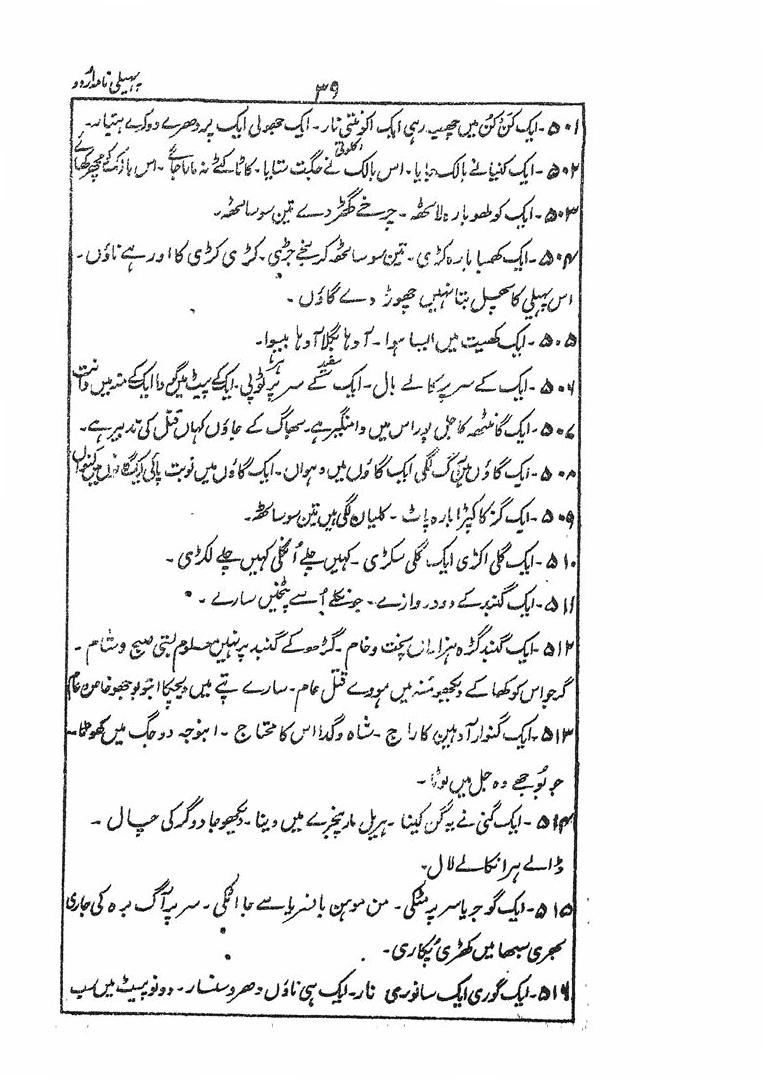 پہیلی نامہ اردو
۳۹
۵۰۱۔ ایک کن کن میں چھپ رہی ایک انوکھی نار۔ ایک جھولی ایک پر دھرے دو کے ہتیار۔
۵۰۲۔ ایک کنیا نے بالک جایا۔ اس بالک نے جگت ستایا۔ کاٹا کٹے نہ مارا جائے۔ اس بالک کو
۵۰۳۔ ایک کولھو بارہ لاٹھ۔ چرخے گھڑ دے تین سو ساٹھ۔
۵۰۴۔ ایک کھمبا بارہ کڑی۔ تین سو ساٹھ کر نیچے جڑی۔ کڑی کڑی کا اور ہے ناؤں۔
اس پہیلی کا پھل بتا نہیں چھوڑ دے گاؤں۔
۵۰۵۔ ایک کھیت میں ایسا ہوا۔ آدھا بگلا آدھا سیوا۔
۵۰۶۔ ایک کے سر پر کالے بال۔ ایک کے سر پر سفید ٹوپی۔ ایک کے پیٹ میں گودا ایک کے منہ میں دانت
۵۰۷۔ ایک گانٹھ کا جل پور اس میں دامنگیر ہے۔ سبھاگ کے جاؤں کہاں قتل کی تدبیر ہے۔
۵۰۸۔ ایک گاؤں میں آگ لگی ایک گاؤں میں دھواں۔ ایک گاؤں میں نوبت پائی ایک گاؤں میں کنواں
۵۰۹۔ ایک گز کا کپڑا بارہ پاٹ۔ کلیاں لگی ہیں تین سو ساٹھ۔
۵۱۰۔ ایک گلی اکڑی ایک گلی سکڑی۔ کہیں چلے انگلی کہیں چلے لکڑی۔
۵۱۱۔ ایک گنبد کے دو دروازے۔ جو نکلے اسے پٹخیں سارے۔
۵۱۲۔ ایک گنبد گڑہ ہزاراں پخت و خام۔ گڑھ کے گنبد پر نہیں معلوم بستی صبح و شام۔
گر جو اس کو کھا کے دیکھو منہ میں ہووے قتل عام۔ سارے تپے میں دیکھا بوجھو خاص و عام
۵۱۳۔ ایک گنوار آدہین کا راج۔ شاہ و گدا اس کا محتاج۔ ابوجھ دو جگ میں کھوٹا۔
جو بوجھے وہ جل میں لوٹا۔
۵۱۴۔ ایک گنی نے یہ گن کینا۔ ہریل مار پنجرے میں دینا۔ دیکھو جادوگر کی چال۔
ڈالے ہرا نکالے لال۔
۵۱۵۔ ایک گوجریا سر پر مٹکی۔ من موہن بانسریا سے جا اٹکی۔ سر پر آگ برہ کی جاری
بھری سبھا میں کھڑی پکاری۔
۵۱۶۔ ایک گوری ایک سانوری نار۔ ایک ہی ناؤں دھرو سنسار۔ دونو پیٹ میں سب